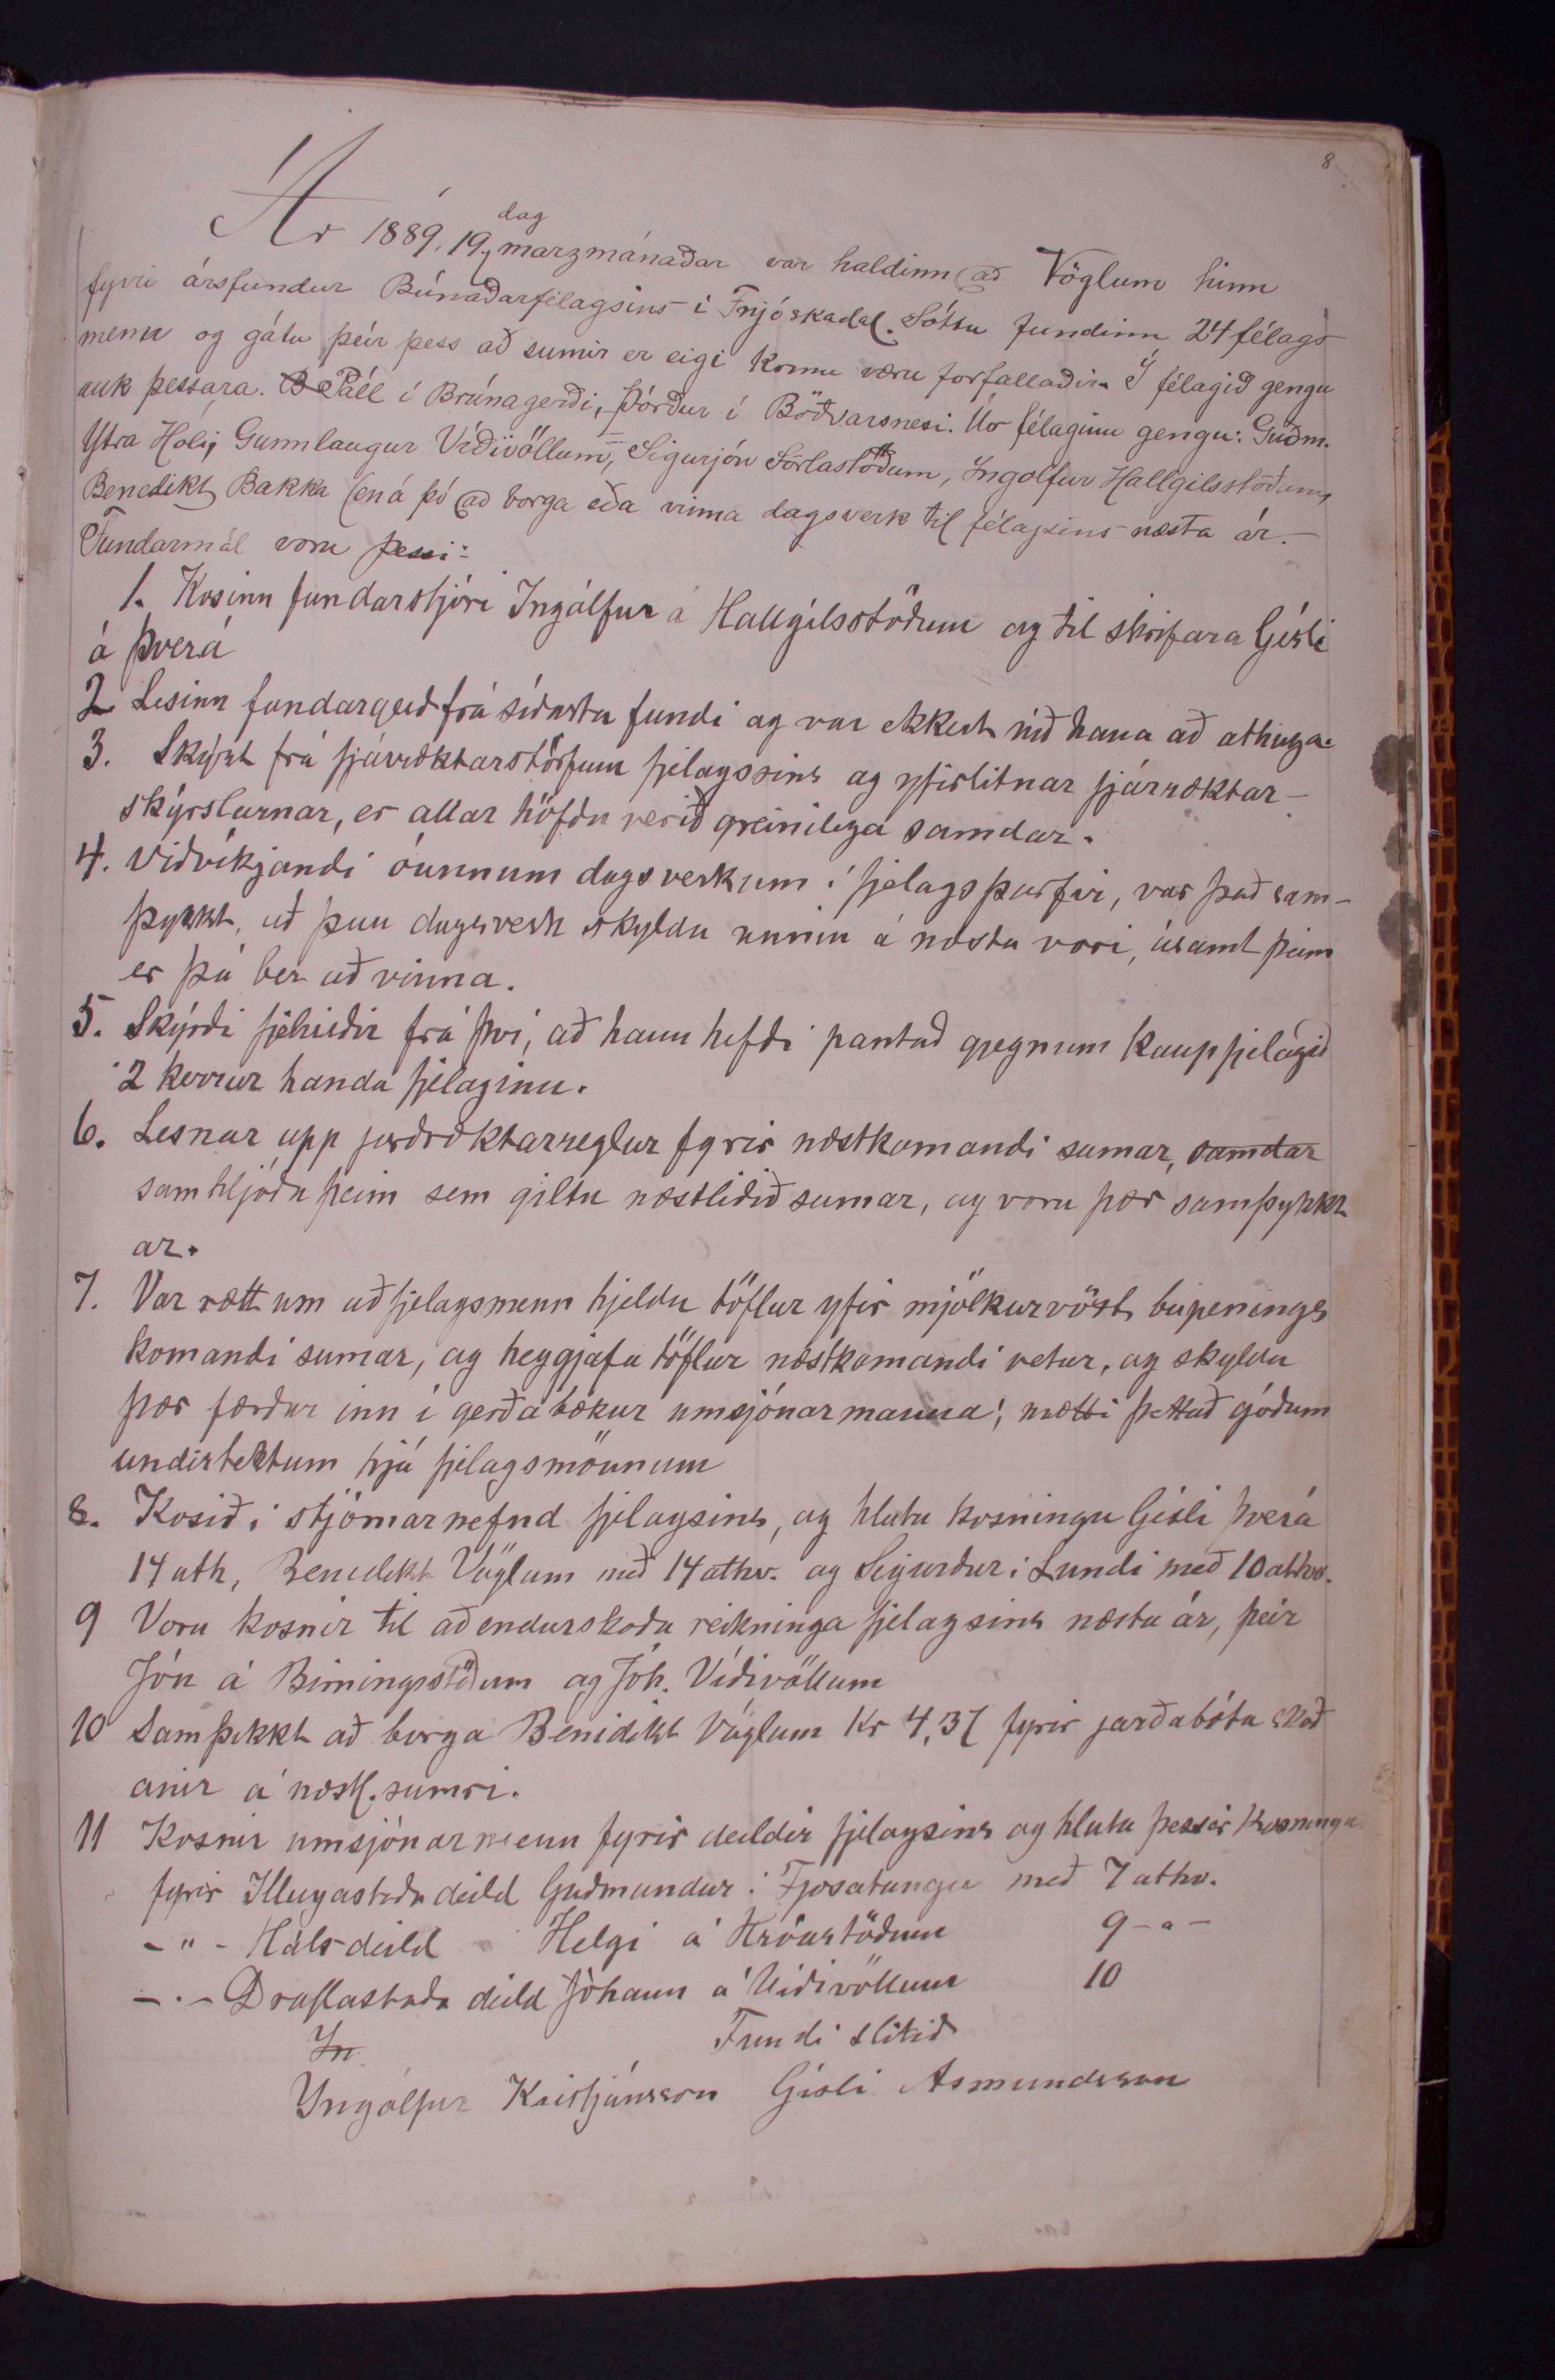 8
Ár 1889. 19. dag marzmánaðar var haldinn að Vöglum hinn
fyrri ársfundur Búnaðarfélagsins í Fnjóskadal. Sóttu fundinn 24 félags
menn og gátu þeir þess að sumir er eigi komu væru forfallaðir. Í félagið gengu
auk þessara. Be Páll í Brúnagerði, Þórður í Böðvarsnesi. Úr félaginu gengu: Guðm.
Ytra Hóli, Gunnlaugur Víðivöllum, Sigurjón Sörlastöðum, Ingolfur Hallgilsstöðum,
Benedikt Bakka (en á þó að borga eða vinna dagsverk til félagsins næsta ár.-
Fundarmál voru þessi:
1. Kosinn fundarstjóri Ingólfur á Hallgilsstöðum og til skrifara Gísli
á Þverá
2 Lesinn fundargerð frá síðasta fundi og var ekkert við hana að athuga.
3. Skýrt frá fjárræktarstörfum fjelagssins og yfirlitnar fjárræktar-
skýrslurnar, er allar höfðu verið greinilega samdar.
4. Viðvíkjandi óunnum dagsverkum í fjelagsþarfir, var það sam-
þykkt, að þau dagsverk skyldu unnin á næsta vori, ásamt þeim
er þá ber að vinna.
5. Skýrði fjehirðir frá því, að hann hefði pantað gjegnum kaupfjelagið
2 kerrur handa fjelaginu.
6. Lesnar upp jarðræktarreglur fyrir næstkomandi sumar, samdar
samhljóða þeim sem giltu næstliðið sumar, og voru þær samþykkt
ar.
7. Var rætt um að fjelagsmenn hjeldu töflur yfir mjólkurvöxt búpenings
komandi sumar, og heygjafa töflur næstkomandi vetur, og skyldu
þær færðar inn í gerðabækur umsjónarmanna; mætti þettað góðum
undirtektum hjá fjelagsmönnum
8. Kosið í stjórnarnefnd fjelagsins, og hlutu kosningu Gísli Þverá
14 atk, Benedikt Vöglum með 14 atkv. og Sigurður í Lundi með 10 atkv.
9 Voru kosnir til að endurskoða reikninga fjelagsins næsta ár, þeir
Jón á Birningsstöðum og Jóh. Víðivöllum
10 Samþikkt að borga Benidikt Vöglum Kr 4,37 fyrir jarðabóta skoð
anir á næstl. sumri.
11 Kosnir umsjónarmenn fyrir deildir fjelagsins og hlutu þessir kosningu
fyrir Illugastaða deild Guðmundur í Fjosatungu með 7 atkv.
- " - Háls deild - Helgi á Hróarstöðum 9 - " -
- . - Draflastaða deild Jóhann á Víðivöllum 10
In Fundi slitið
Yngólfur Kristjánsson Gísli Asmundsson